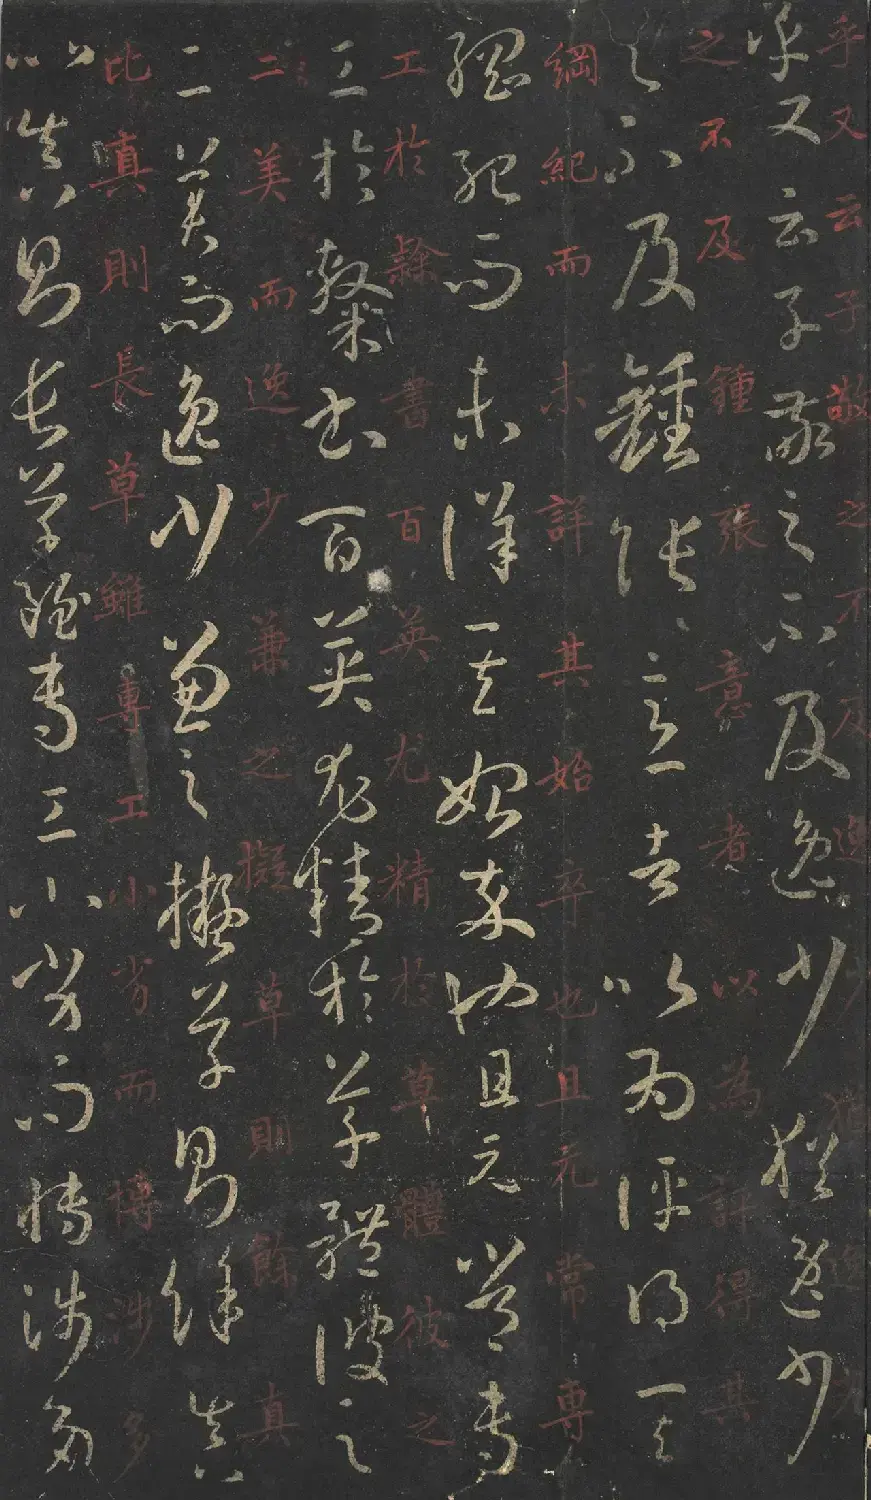 乎又云子敬之不及逸少猶逸少
乎又云子敬之不及逸少猶逸少
之不及鍾張意者以為評得其
之不及鍾張意者以為評得其
綱紀而未詳其始卒也且元常專
綱紀而未詳其始卒也且元常專
工於隸書百英尤精於草體彼之
工於隸書百英尤精於草體彼之
二美而逸少兼之擬草則餘真
二美而逸少兼之擬草則餘真
比真則長草雖專工小劣而博涉多
比真則長草雖專工小劣而博涉多